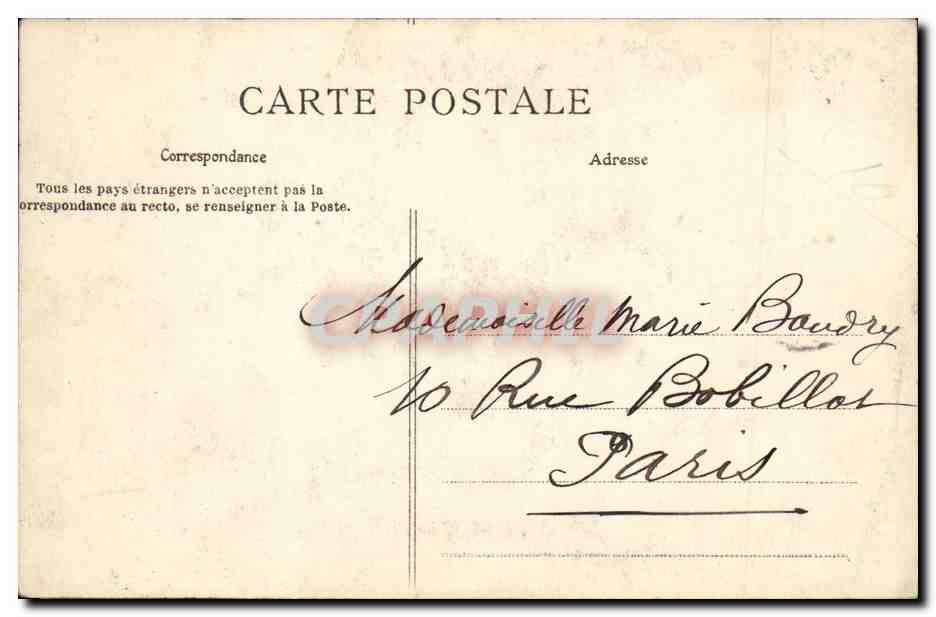 CARTE POSTALE
Correspondance
Tous les pays étrangers n'acceptent pas la
orrespondance au recto, se renseigner à la Poste.
Adresse
Mademoiselle Marie Baudry
10 Rue Bobillot
Paris
CPAPHIL